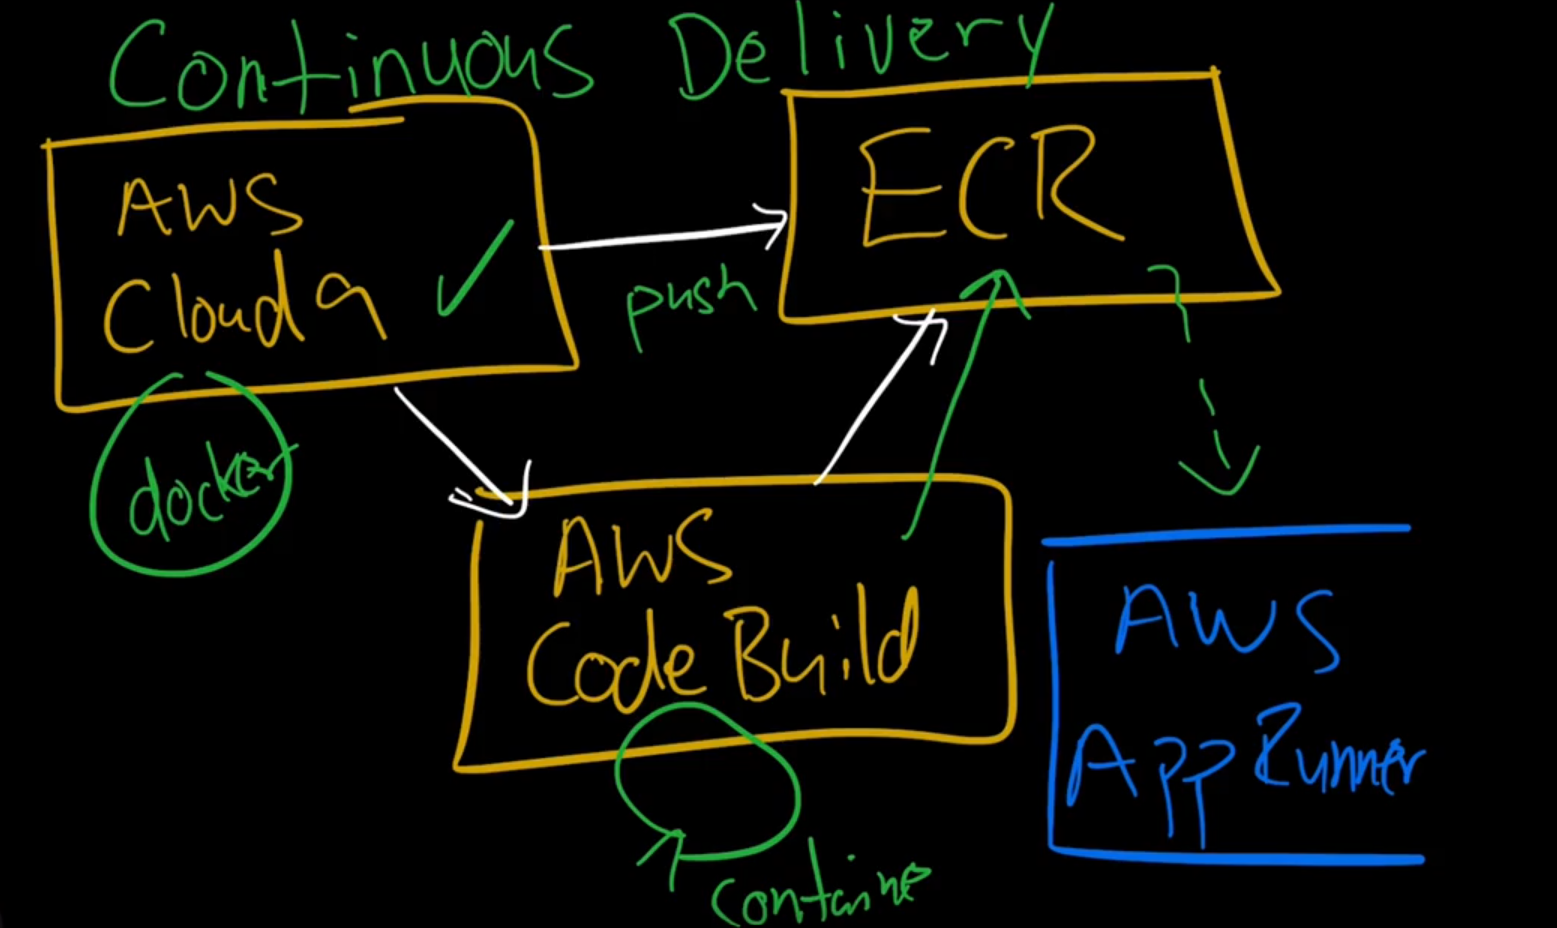 Continuous Delivery
AWS
Cloud9
docker
push
ECR
AWS
CodeBuild
containe
AWS
App Runner